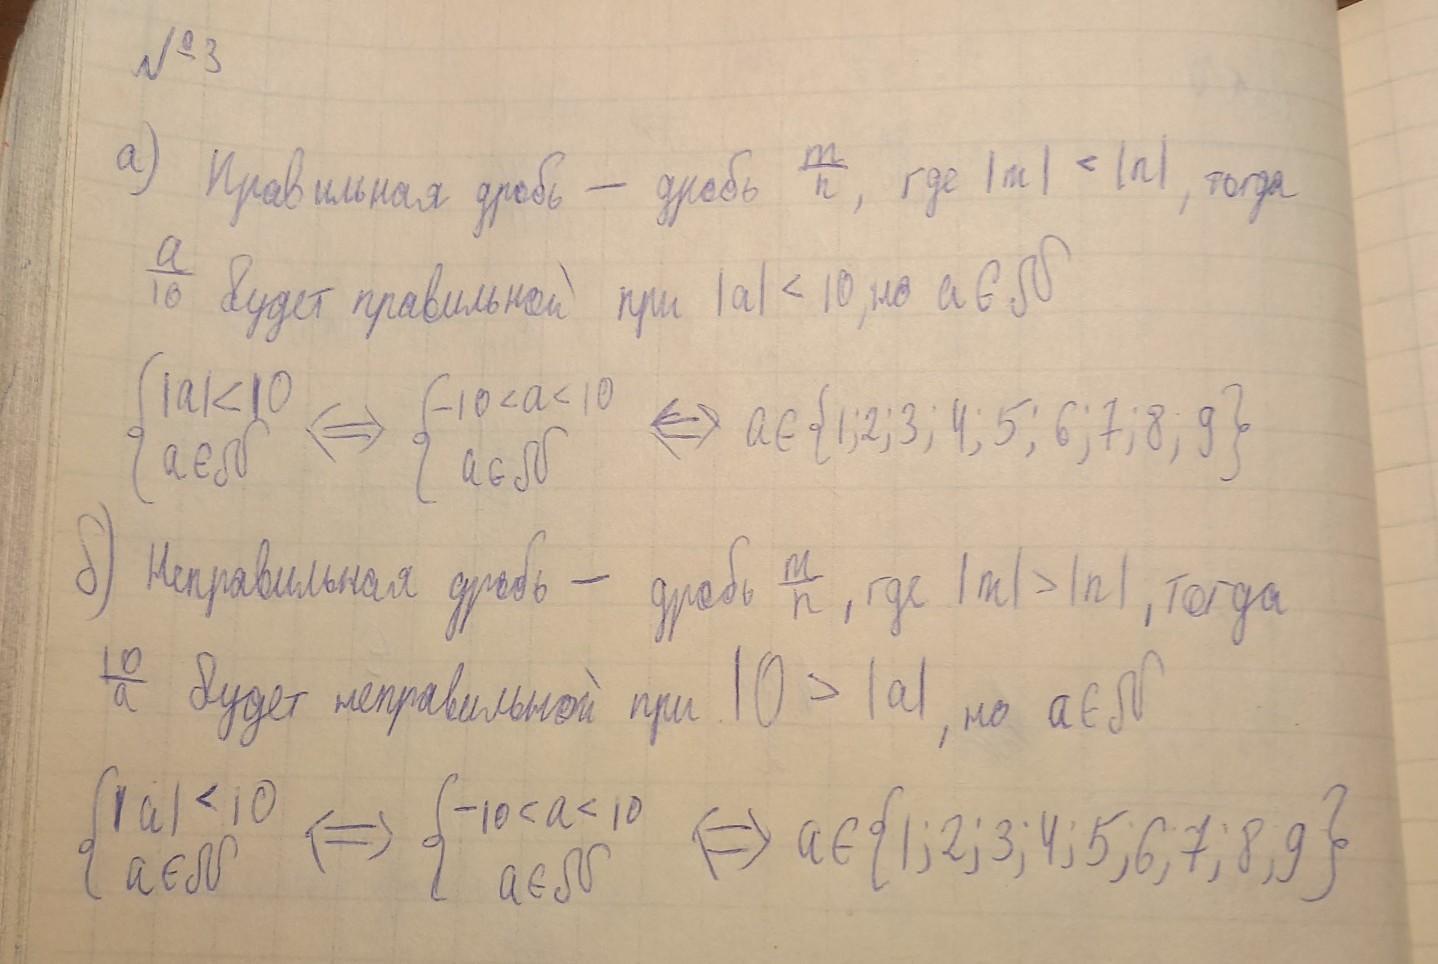 №3
а) Правильная дробь — дробь m/n, где |m| < |n|, тогда
a/10 будет правильной при |a| < 10, но a ∈ ℕ
{|a| < 10 a ∈ ℕ ⇔ {-10 < a < 10 a ∈ ℕ ⇔ a ∈ {1; 2; 3; 4; 5; 6; 7; 8; 9}
б) Неправильная дробь — дробь m/n, где |m| > |n|, тогда
10/a будет неправильной при 10 > |a|, но a ∈ ℕ
{|a| < 10 a ∈ ℕ ⇔ {-10 < a < 10 a ∈ ℕ ⇔ a ∈ {1; 2; 3; 4; 5; 6; 7; 8; 9}